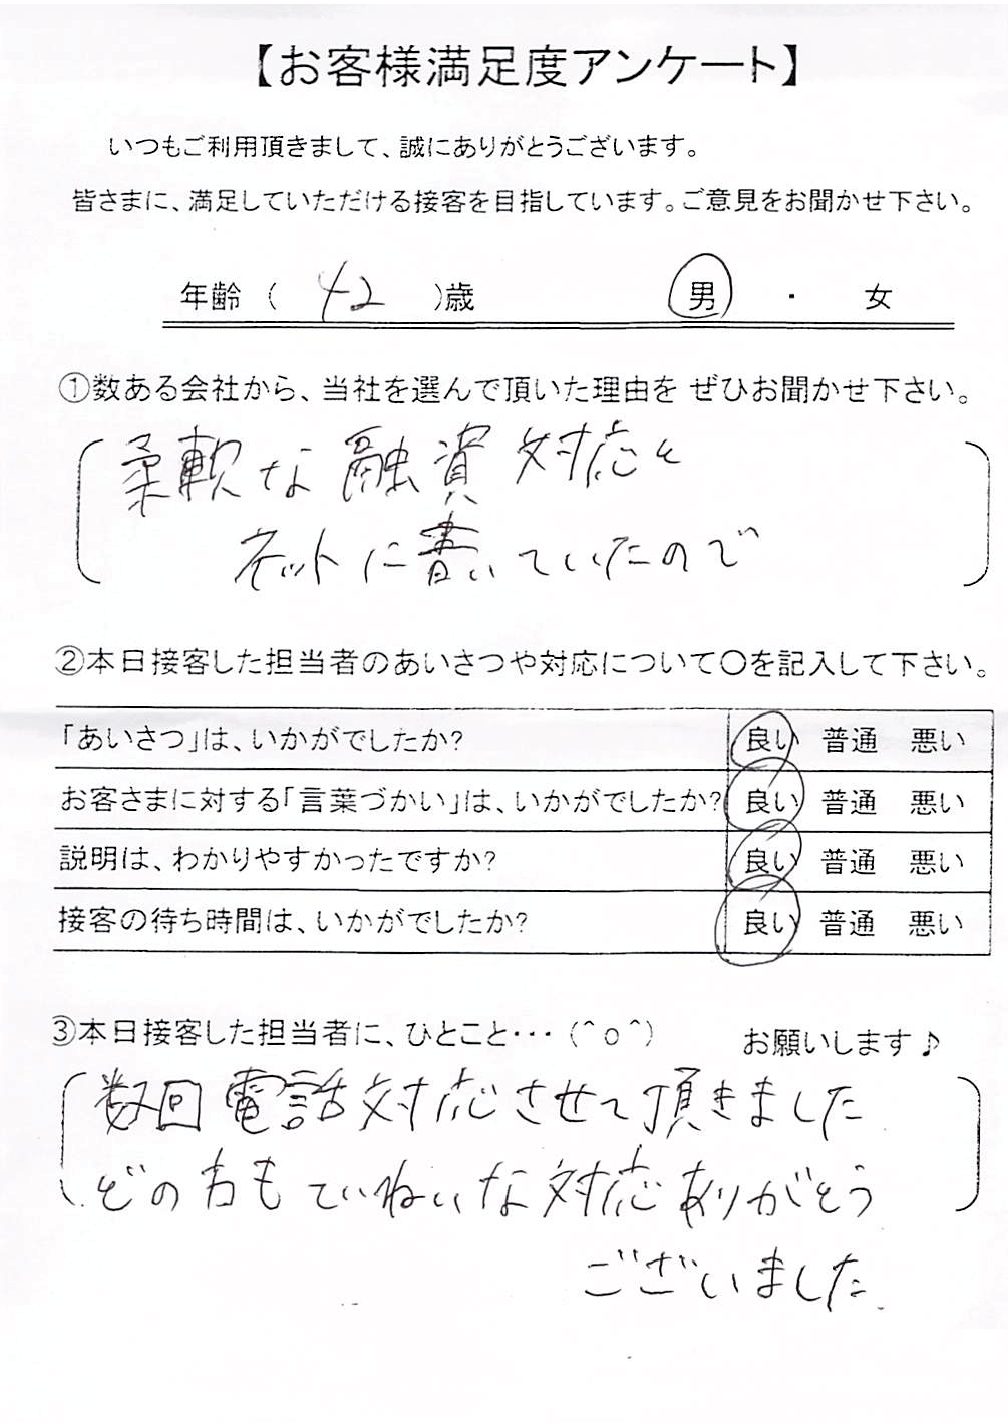 【お客様満足度アンケート】
いつもご利用頂きまして、誠にありがとうございます。
皆さまに、満足していただける接客を目指しています。ご意見をお聞かせ下さい。
年齢 ( 42 )歳 男 ・ 女
①数ある会社から、当社を選んで頂いた理由を ぜひお聞かせ下さい。
柔軟な融資対応と
ネットに書いていたので
②本日接客した担当者のあいさつや対応について〇を記入して下さい。
「あいさつ」は、いかがでしたか? 良い 普通 悪い
お客さまに対する「言葉づかい」は、いかがでしたか? 良い 普通 悪い
説明は、わかりやすかったですか? 良い 普通 悪い
接客の待ち時間は、いかがでしたか? 良い 普通 悪い
③本日接客した担当者に、ひとこと・・・(^o^) お願いします♪
数回電話対応させて頂きました
どの方もていねいな対応ありがとう
ございました